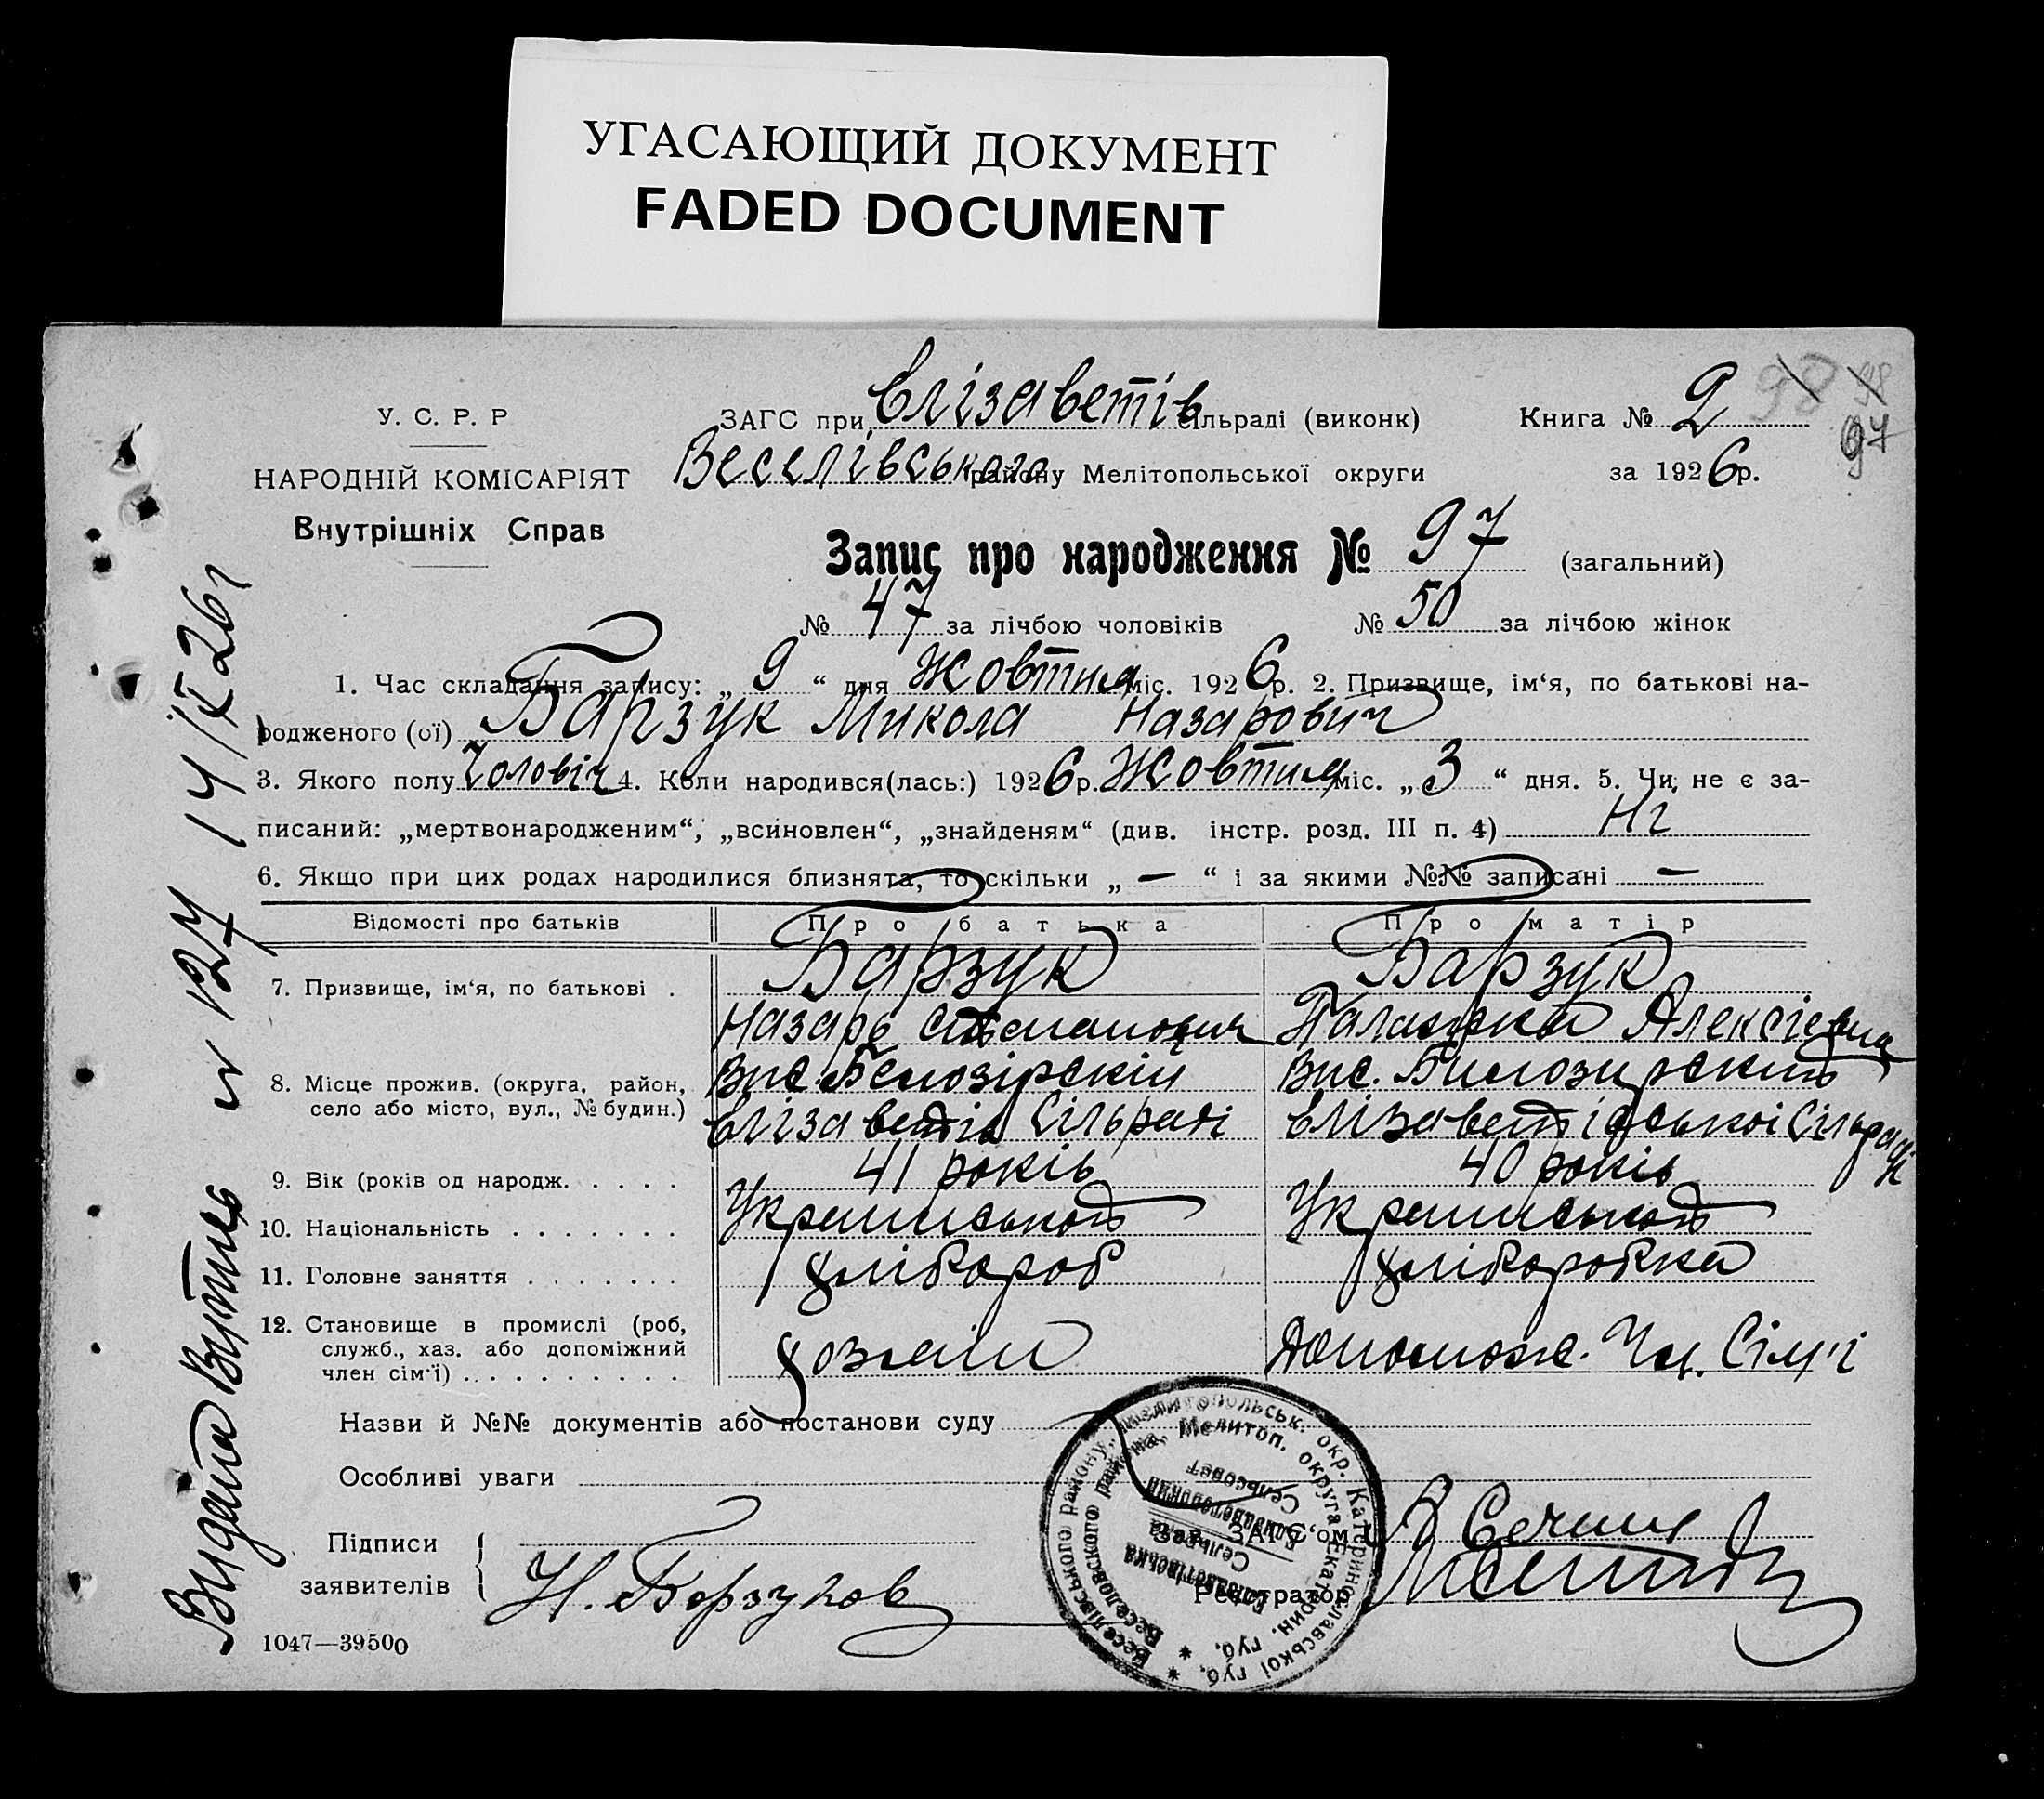 УГАСАЮЩИЙ ДОКУМЕНТ
FADED DOCUMENT
98 98
97
У. С. Р. Р
НАРОДНІЙ КОМІСАРІЯТ
Внутрішніх Справ
ЗАГС при Єлізаветів сільраді (виконк)
Веселівського району Мелітопольської округи
Книга № 2
за 1926р.
Запис про народження № 97 (загальний)
№ 47 за лічбою чоловіків № 50 за лічбою жінок
1. Час складання запису: „ 9 “ дня Жовтня міс. 1926р. 2. Призвище, ім‘я, по батькові на-
родженого (ої) Барзук Микола Назарович
3. Якого полу Чоловіч 4. Коли народився(лась:) 1926р. Жовтня міс. „ 3 “ дня. 5. Чи не є за-
писаний: „мертвонародженим“, „всиновлен“, „знайденям“ (див. інстр. розд. III п. 4) Ні
6. Якщо при цих родах народилися близнята, то скільки „ — “ і за якими №№ записані —
Відомості про батьків Про батька Про матір
7. Призвище, ім‘я, по батькові . Барзук Барзук
Назарь Степанович Палажка Алексієвна
8. Місце прожив. (округа, район, село або місто, вул., № будин.) Вис. Белозірскій Вис. Билозирский
Єлізаветів Сільраді Єлізаветівської Сільради
9. Вік (років од народж. . . . . 41 років 40 років
10. Національність . . . . . . . Українськой Українськой
11. Головне заняття . . . . . . . хлібороб хліборобка
12. Становище в промислі (роб, служб., хаз. або допоміжний член сім‘ї) . . . . . . . . . . хозяїн Допомож. Чл. Сім'ї
Назви й №№ документів або постанови суду
Особливі уваги
Підписи
заявителів
Н. Борзуков
Зав. ЗАГС‚ом
Регстратор
1047—39500
Видана Витись № 127 14/X 26 г
Веселівського району, Мелитопольськ. окр. Катеринославської губ.
Веселовского района, Мелитоп. округа Екатерин. губ.
Єлізаветівська
Сельрада
Елизаветовский
Сельсовет